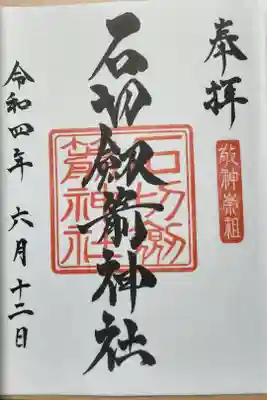 奉拝
敬神崇祖
石切劔箭神社
石切劔箭神社
令和四年 六月十二日